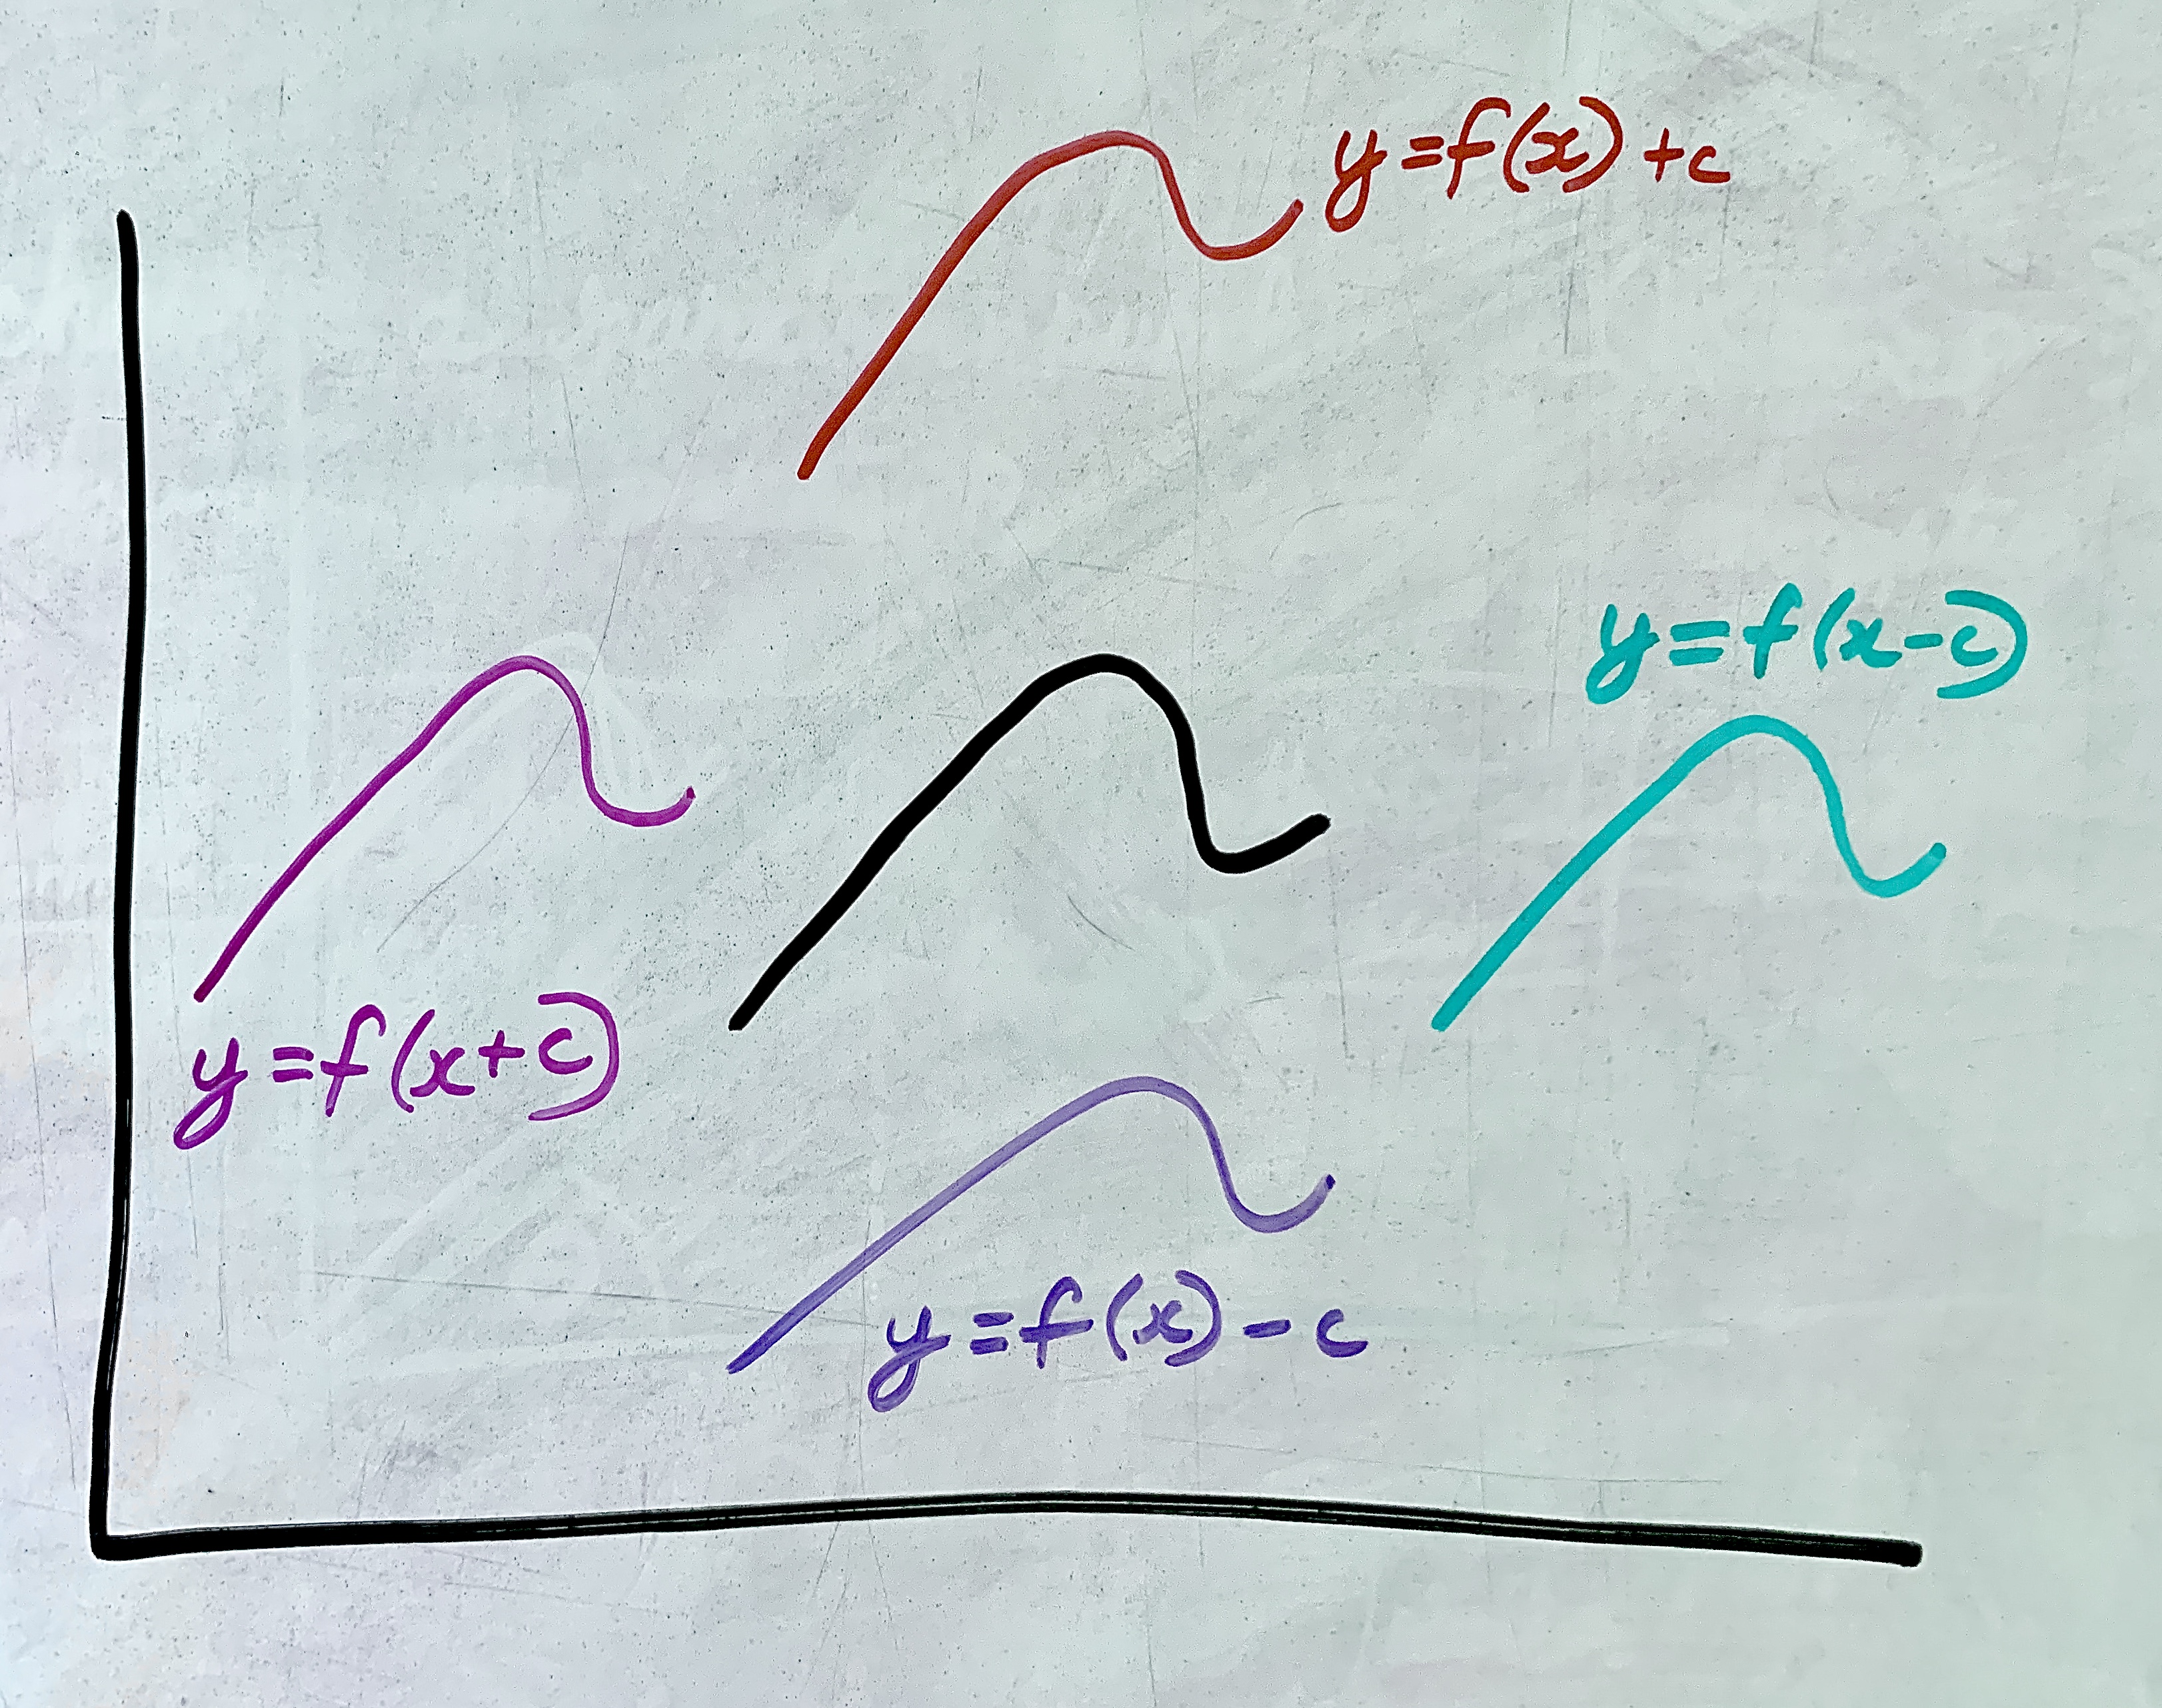 y=f(x)+c
y=f(x-c)
y=f(x+c)
y=f(x)-c